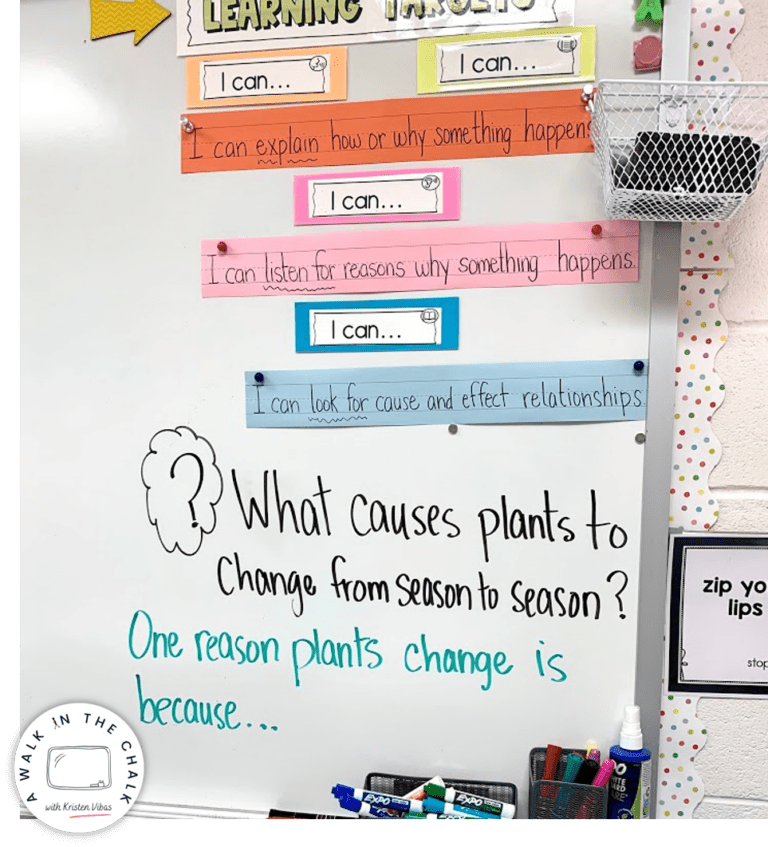 LEARNING TARGETS
I can...
I can...
I can explain how or why something happens
I can...
I can listen for reasons why something happens.
I can...
I can look for cause and effect relationships
? What causes plants to
change from season to season?
One reason plants change is
because...
zip yo
lips
stop
A WALK IN THE CHALK
with Kristen Vibas
EXPO
EXPO